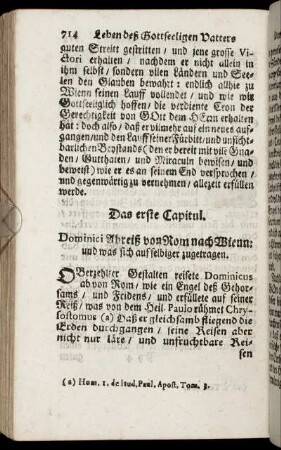 714 Leben deß Gottseeligen Vatters
guten Streitt gestritten / und jene grosse Vi-
ctori erhalten / nachdem er nicht allein in
ihm selbst / sondern vilen Ländern und See-
len den Glauben bewahrt : endlich allhie zu
Wienn seinen Lauff vollendet / und wie wir
Gottseeliglich hoffen / die verdiente Cron der
Gerechtigkeit von GOtt dem HErrn erhalten
hat : doch also / daß er vilmehr auf ein neues auf-
gangen / und den Lauff seiner Fürbitt / und unsicht-
barlichen Beystands ( den er bereit mit vill Gna-
den / Gutthaten / und Miraculn bewisen / und
beweist ) wie er es an seinem End versprochen /
und gegenwärtig zu vernehmen / allezeit erfüllen
werde.
Das erste Capitul.
Dominici Abreiß von Rom nach Wienn :
und was sich auf selbiger zugetragen.
OBerzehlter Gestalten reisete Dominicus
ab von Rom / wie ein Engel deß Gehor-
sams / und Fridens / und erfüllete auf seiner
Reiß / was von dem Heil. Paulo rühmet Chry-
sostomus (a) Daß er gleichsamb fliegend die
Erden durchgangen / seine Reisen aber
nicht nur läre / und unfruchtbare Rei-
sen
(a) Hom. 1. de laud. Paul. Apost. Tom. 3.